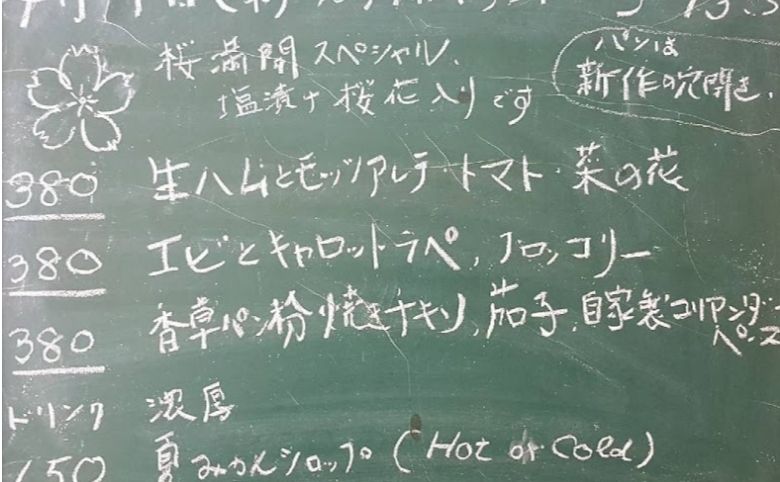 桜満開スペシャル、
塩漬け桜花入りです
パンは
新作の穴開き、
380 生ハムとモッツアレラ・トマト・菜の花
380 エビとキャロットラペ、ブロッコリー
380 香草パン粉焼きチキン、茄子、自家製コリアンダー
ペースト
ドリンク 濃厚
150 夏みかんシロップ (Hot or Cold)